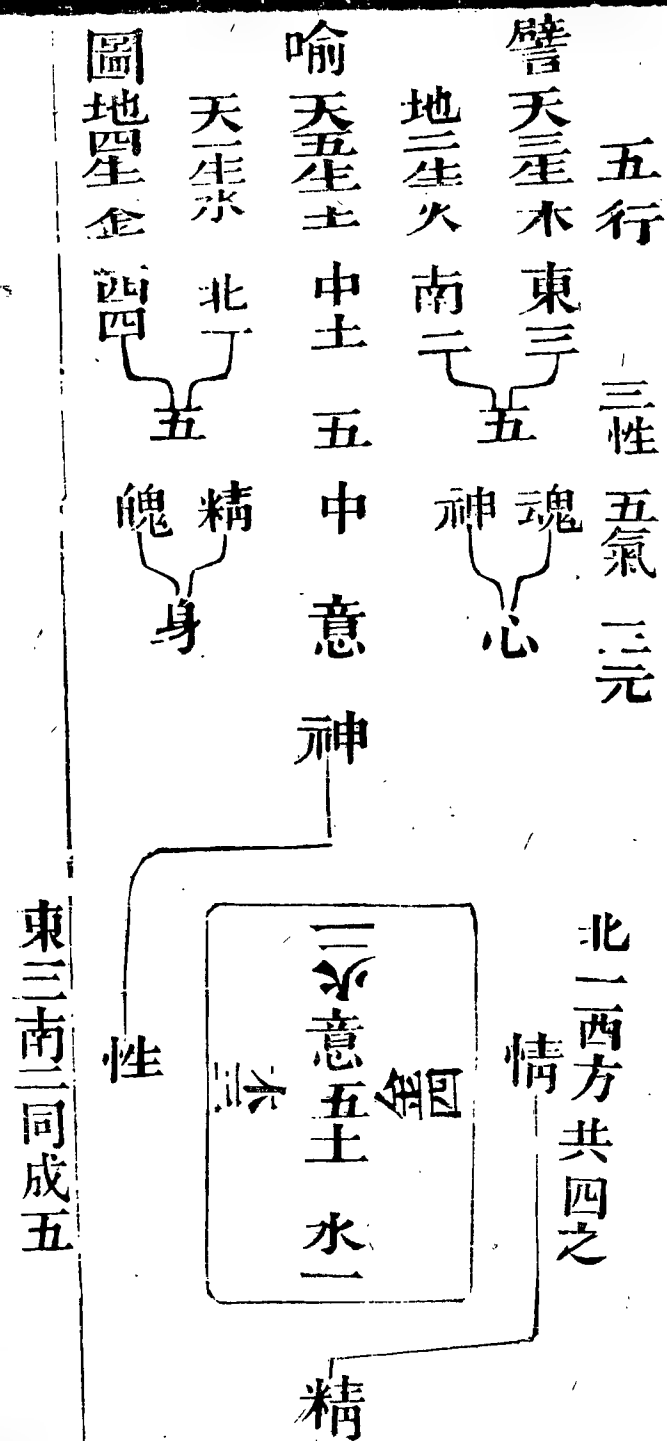 五行 三性 五氣 三元
譬 天三生木 東三
地二生火 南二
五
魂 神
心
喻 天五生土 中土 五 中 意
天一生水 北一
圖 地四生金 西四
五
精 魄
身
神
性
情
精
北一西方共四之
二火
三木
意五土
四金
水一
東三南二同成五